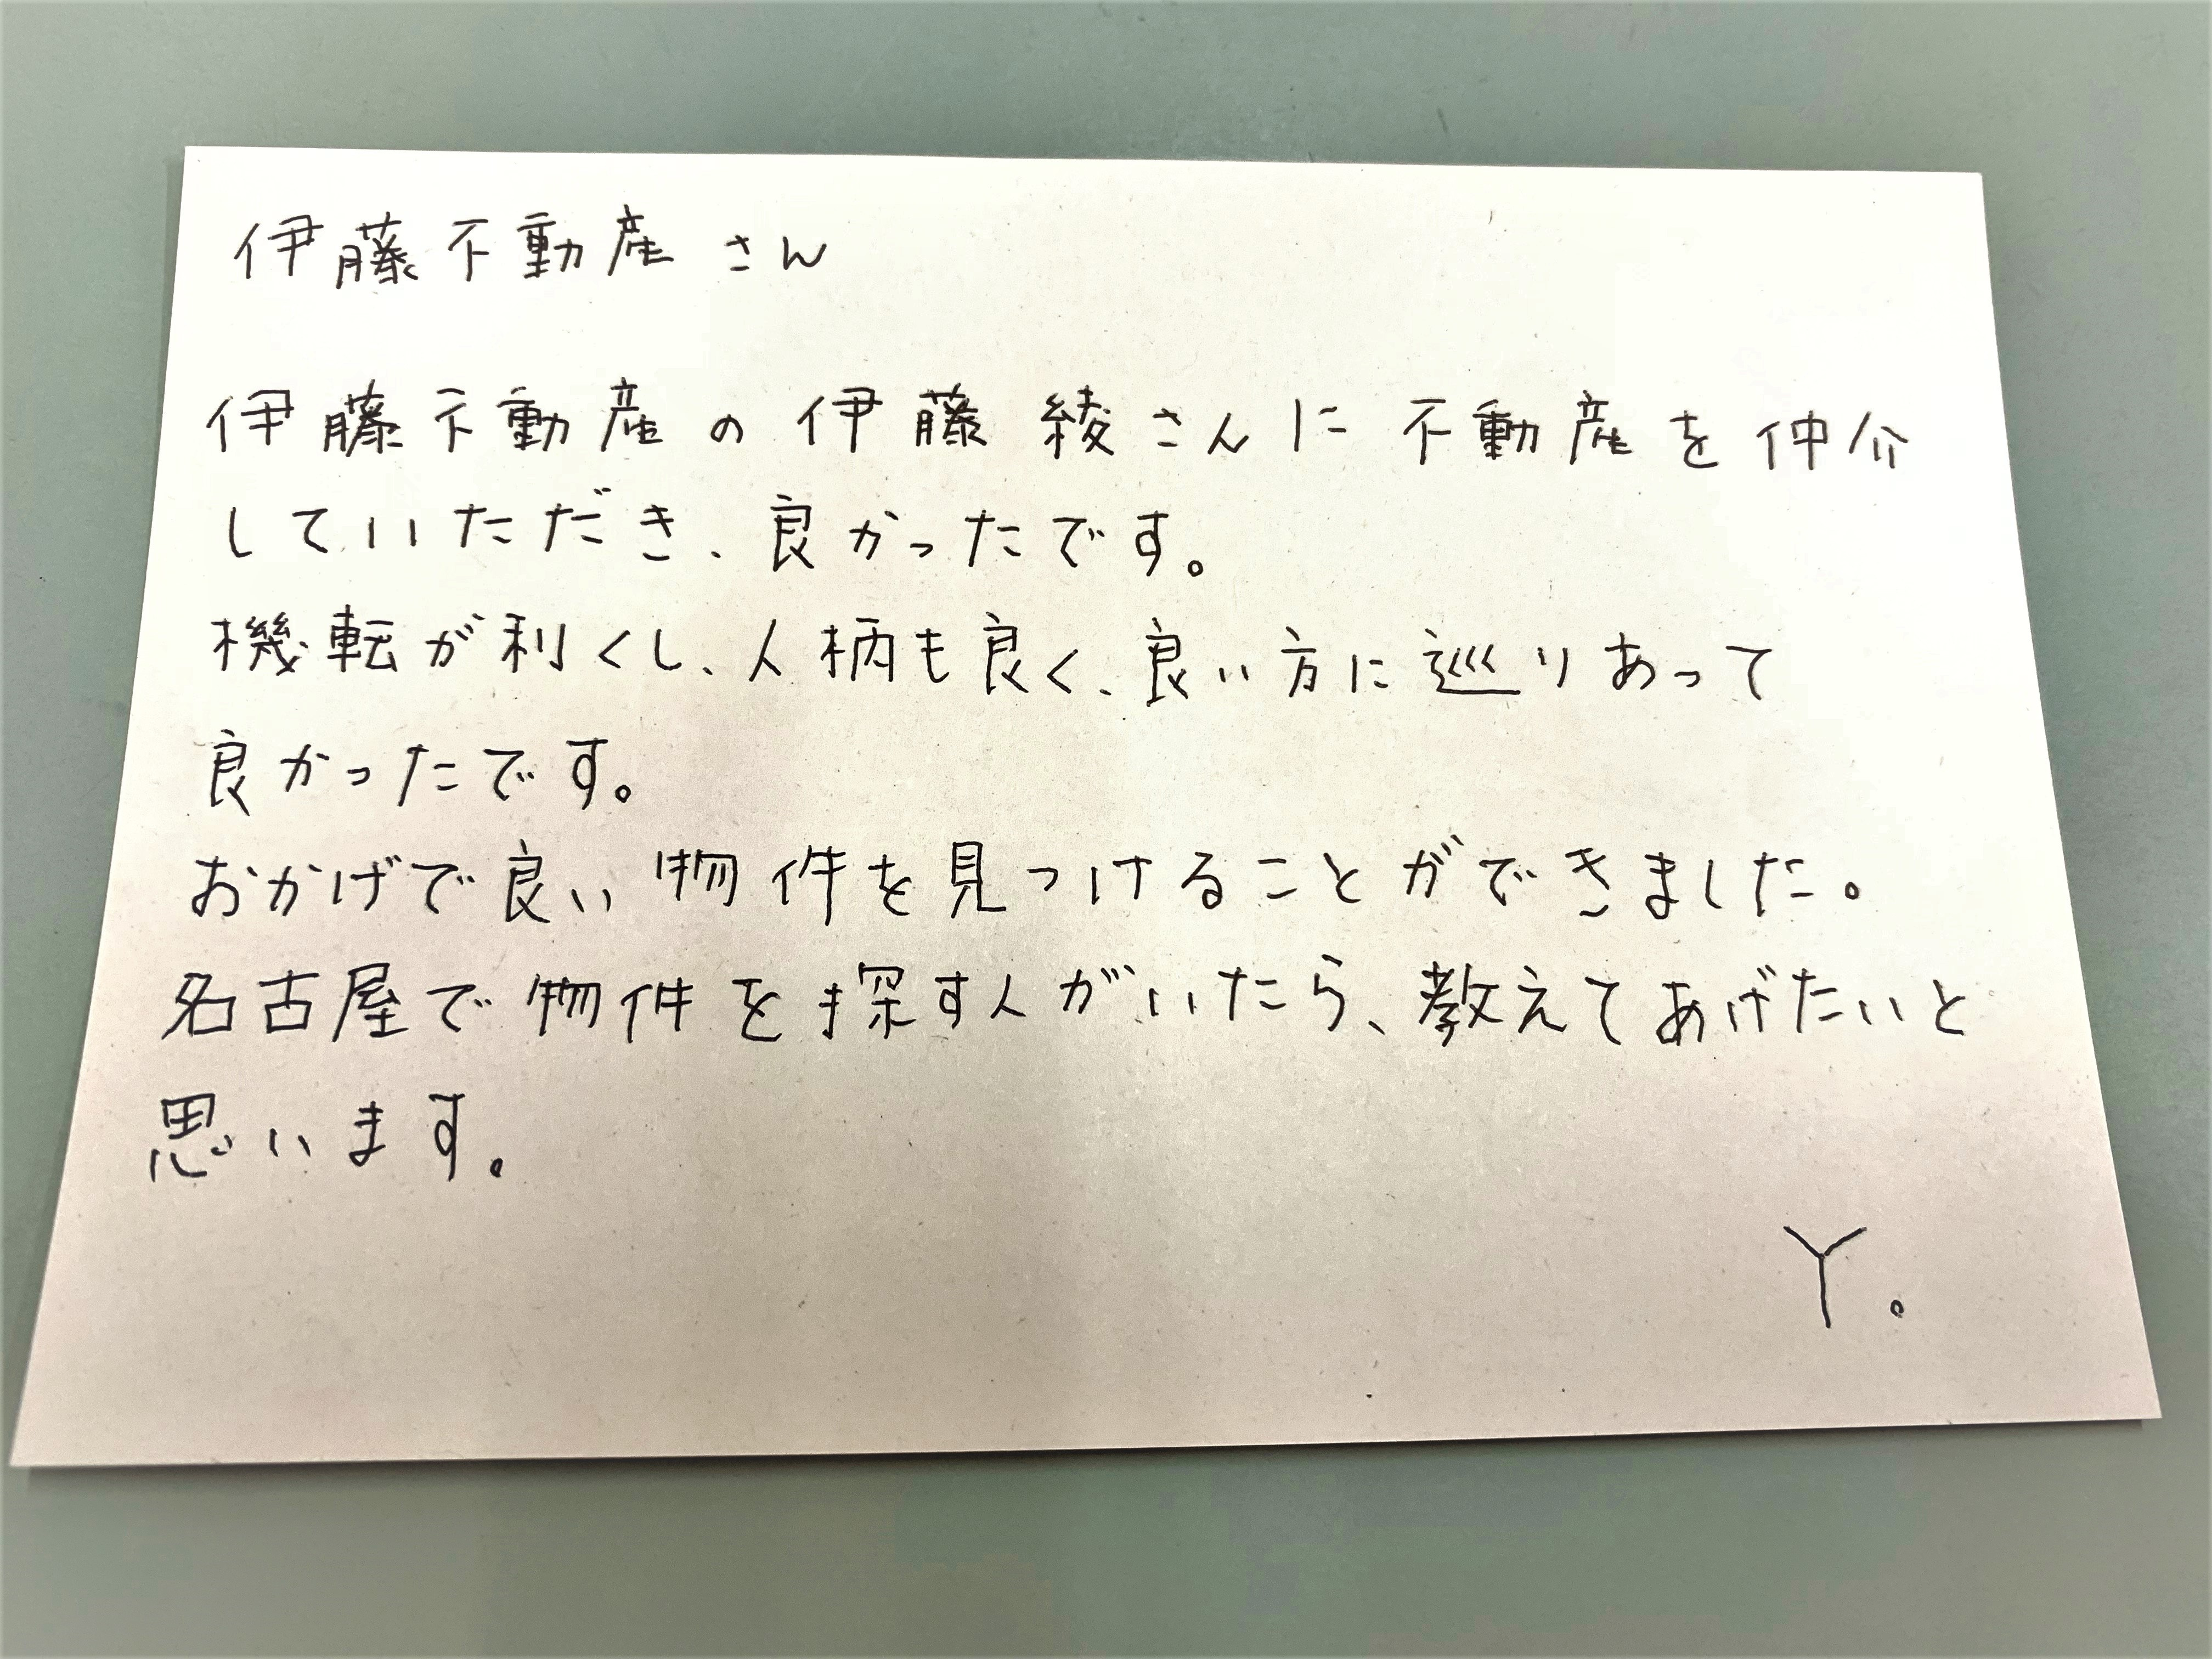 伊藤不動産さん
伊藤不動産の伊藤綾さんに不動産を仲介
していただき、良かったです。
機転が利くし、人柄も良く、良い方に巡りあって
良かったです。
おかげで良い物件を見つけることができました。
名古屋で物件を探す人がいたら、教えてあげたいと
思います。
Y.